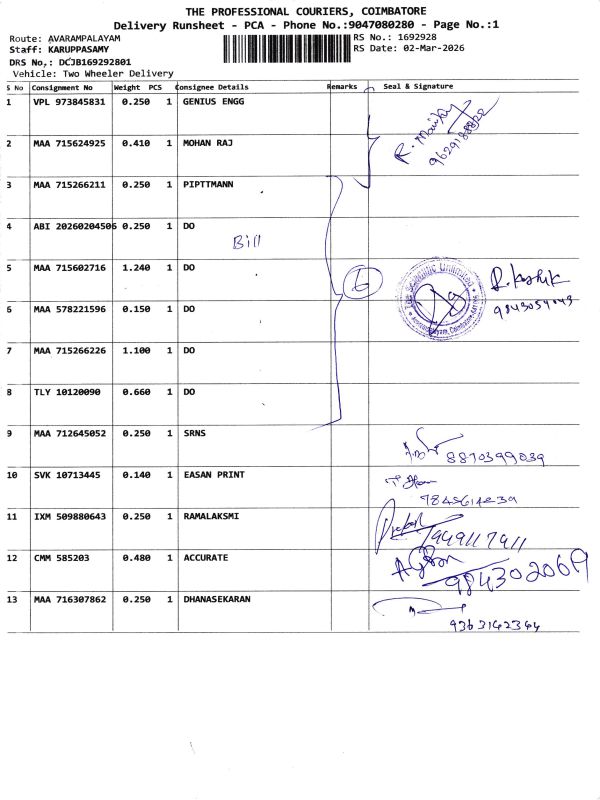 THE PROFESSIONAL COURIERS, COIMBATORE
Delivery Runsheet - PCA - Phone No.:9047080280 - Page No.:1
Route: AVARAMPALAYAM
RS No.: 1692928
Staff: KARUPPASAMY
RS Date: 02-Mar-2026
DRS No.: DCJB169292801
Vehicle: Two Wheeler Delivery
S No Consignment No Weight PCS Consignee Details Remarks Seal & Signature
1 VPL 973845831 0.250 1 GENIUS ENGG
2 MAA 715624925 0.410 1 MOHAN RAJ
9629188828
3 MAA 715266211 0.250 1 PIPTTMANN
4 ABI 20260204506 0.250 1 DO
Bill
5 MAA 715602716 1.240 1 DO
6
The Scientific Unlimited
6 MAA 578221596 0.150 1 DO
7 MAA 715266226 1.100 1 DO
8 TLY 10120090 0.660 1 DO
9 MAA 712645052 0.250 1 SRNS
8870399039
10 SVK 10713445 0.140 1 EASAN PRINT
11 IXM 509880643 0.250 1 RAMALAKSMI
9499117911
12 CMM 585203 0.480 1 ACCURATE
984302069
13 MAA 716307862 0.250 1 DHANASEKARAN
9363142344